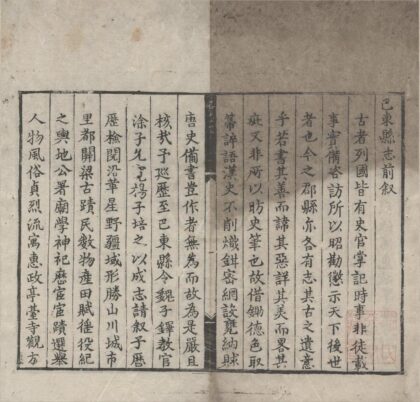 巴東縣志前叙
古者列國皆有史官掌記時事非徒載
事實備咨訪所以昭勸懲示天下後世
者也今之郡縣亦各有志其古之遺意
乎若書其善而諱其惡詳其美而畧其
疵又非所以昉史筆也故借鋤德色取
箒誶語漢史不削熾鉗密網設甕納賕
唐史備書豈作者無為而故為是嚴且
核哉予巡歷至巴東縣令魏子鐸教官
涂子先楊子培之以成志請叙予
歷檢閱沿革星野疆域形勝山川城市
里都關梁古蹟民數物產田賦徭役紀
之輿地公署廟學神祀宦蹟選舉
人物風俗貞烈流寓惠政亭臺寺觀方